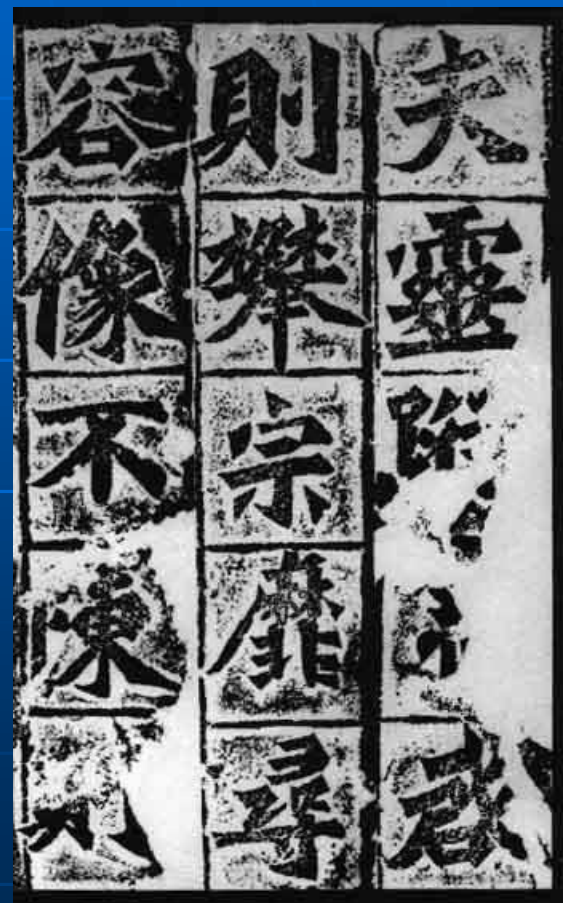 夫靈啟
則攀宗靡尋
容像不陳